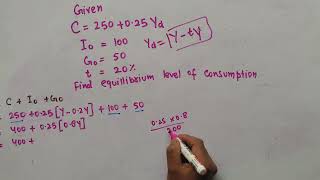 Given
C = 250 + 0.25 Yd
I₀ = 100 Yd = Y - tY
G₀ = 50
t = 20%
Find equilibrium level of Consumption
C + I₀ + G₀
= 250 + 0.25 [Y - 0.2Y] + 100 + 50
= 400 + 0.25 [0.8Y]
= 400 +
0.25 × 0.8
200